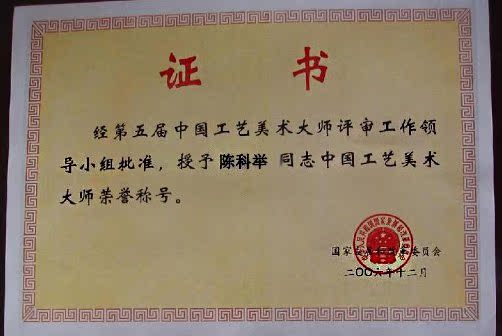 证书
经第五届中国工艺美术大师评审工作领
导小组批准，授予陈科举同志中国工艺美术
大师荣誉称号。
国家发展和改革委员会
二〇〇六年十二月